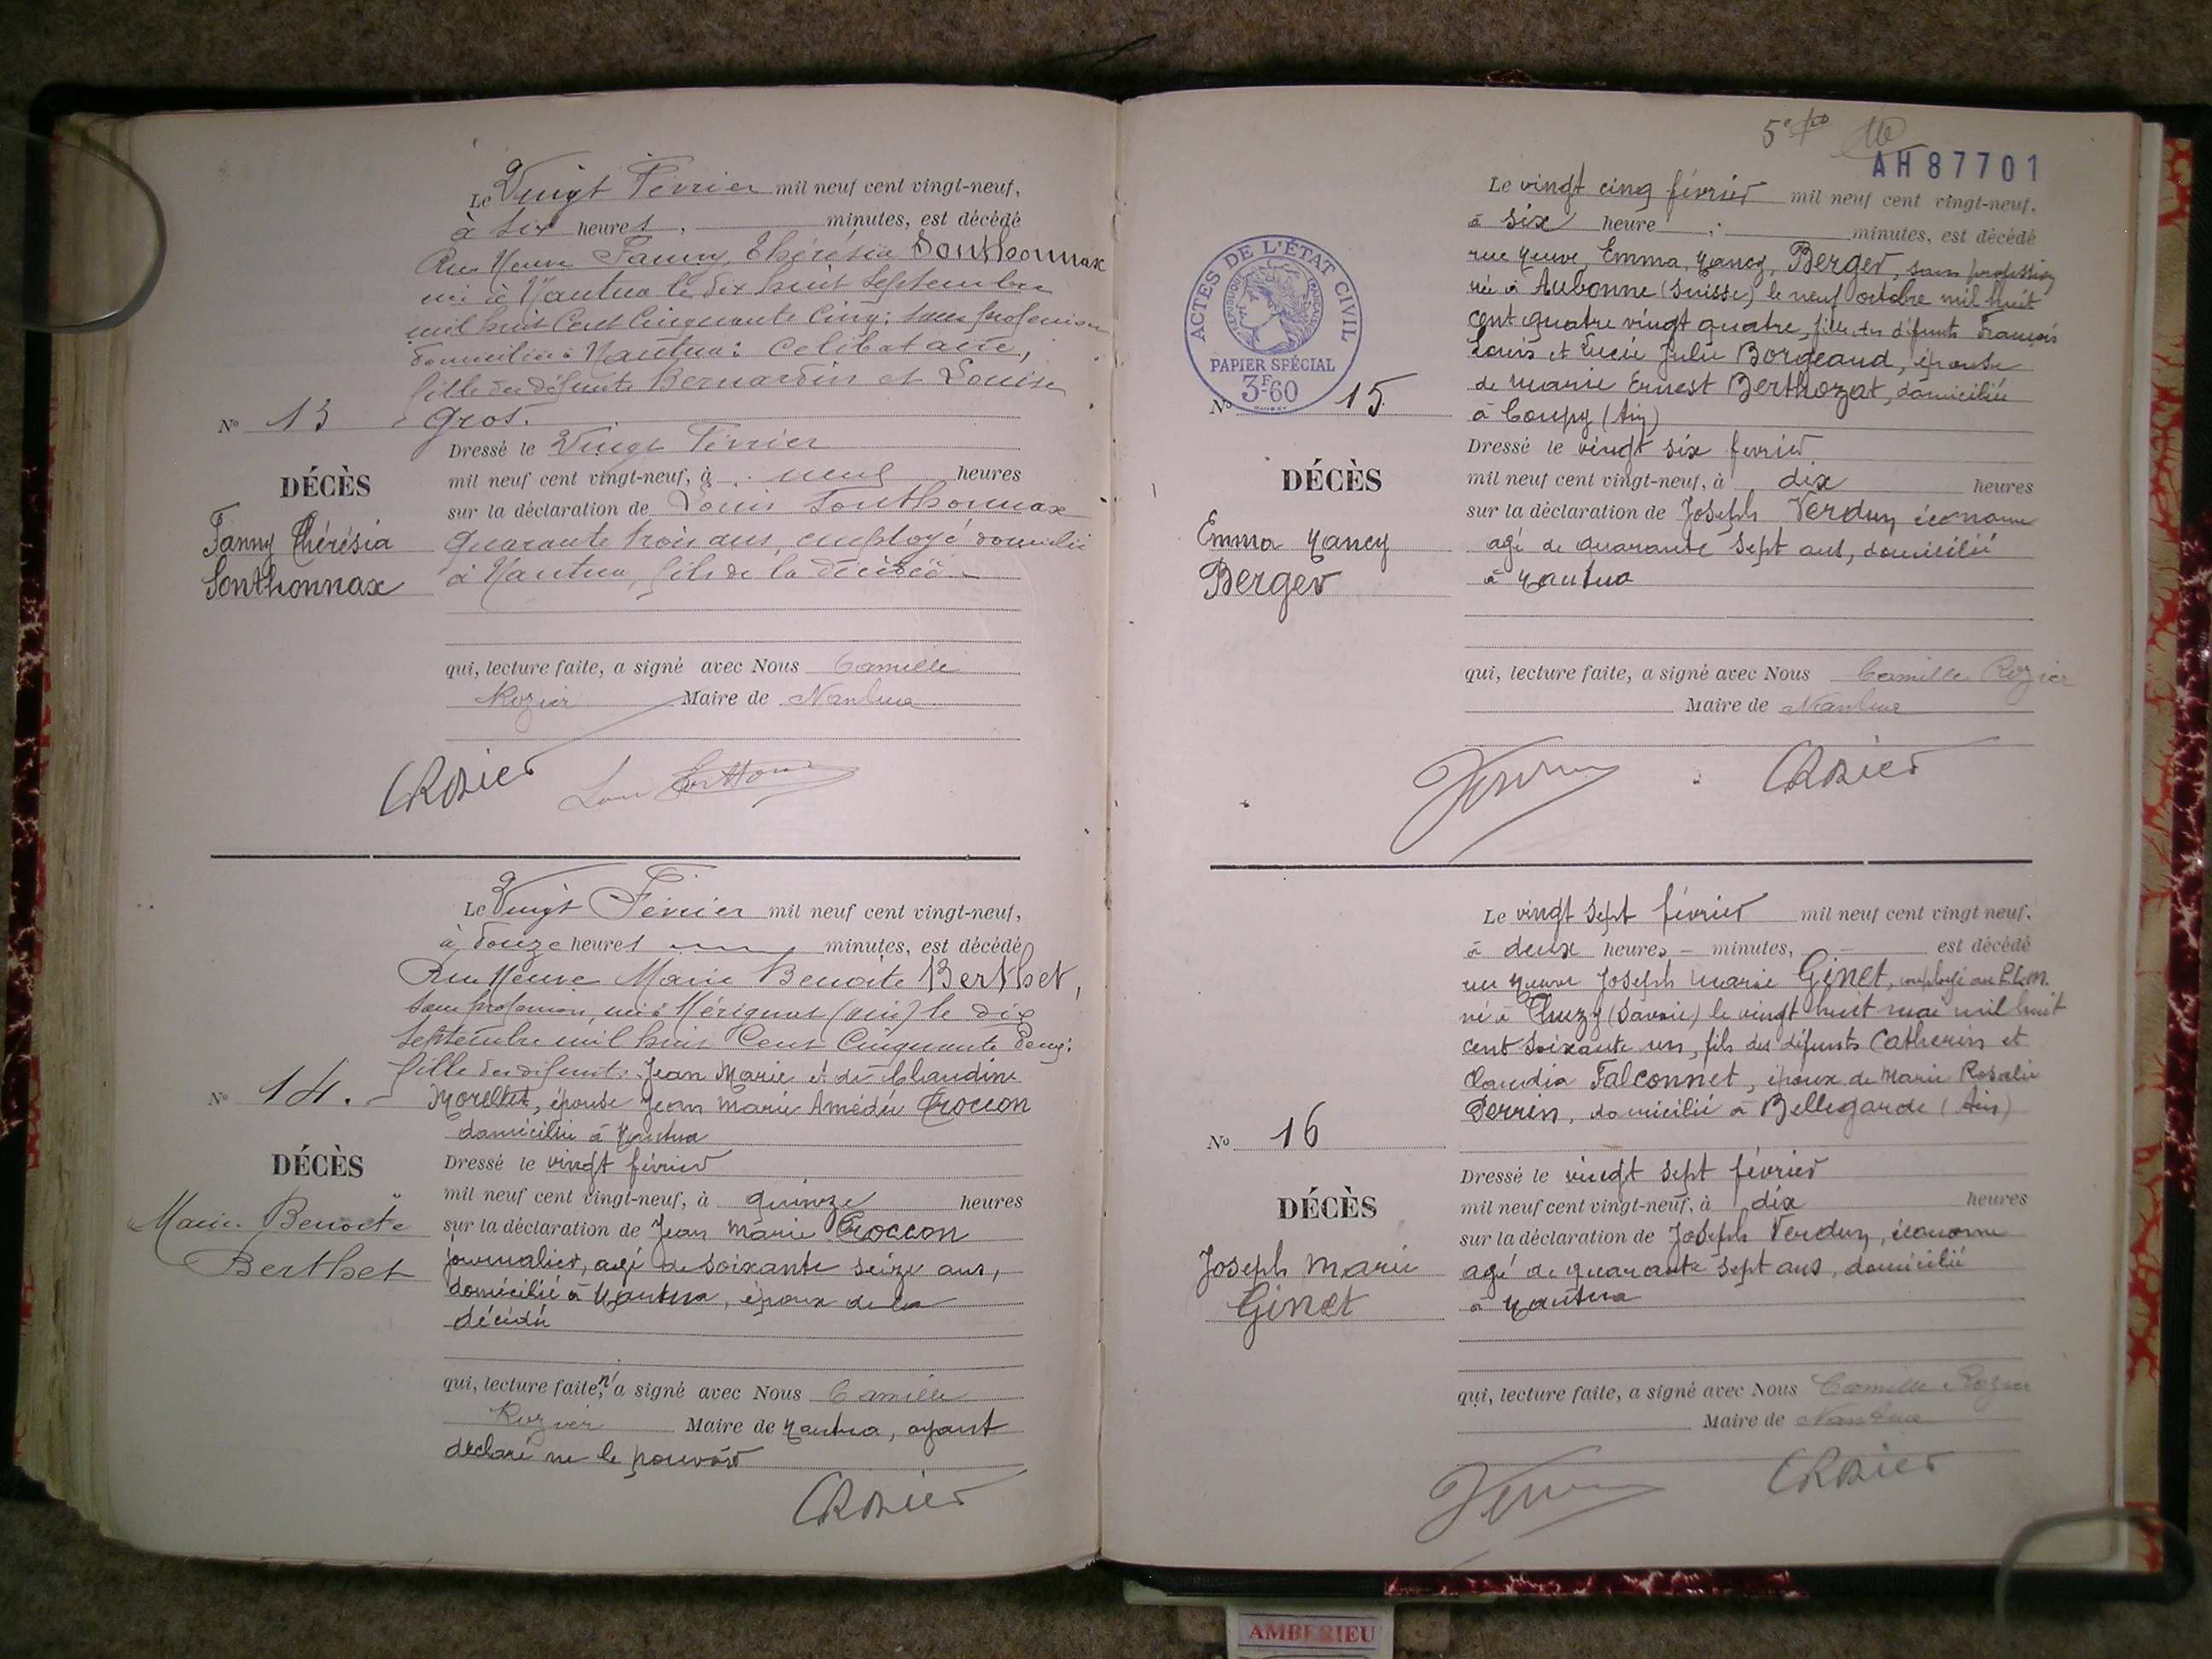 Le Vingt Février mil neuf cent vingt-neuf,
à six heures, minutes, est décédé
Rue Neuve Fanny Thérésia Sonthonnax
née à Nantua le dix huit Septembre
mil huit Cent Cinquante Cinq; sans profession
domiciliée à Nantua; Célibataire,
fille des défunts Bernardin et Louise
Gros.
N° 13
Dressé le Vingt Février
mil neuf cent vingt-neuf, à neuf heures
sur la déclaration de Louis Sonthonnax
quarante trois ans, employé domicilié
à Nantua, fils de la décédée
DÉCÈS
Fanny Thérésia
Sonthonnax
qui, lecture faite, a signé avec Nous Camille
Rozier Maire de Nantua
CRozier
Le Vingt Février mil neuf cent vingt-neuf,
à douze heures minutes, est décédé
Rue Neuve Marie Benoite Berthet,
sans profession, née à Mérignat (Ain) le dix
Septembre mil huit Cent Cinquante deux;
fille des défunts: Jean Marie et de Claudine
Morellet, épouse Jean Marie Amédée Croccon
domiciliée à Nantua
N° 14.
Dressé le vingt février
mil neuf cent vingt-neuf, à quinze heures
sur la déclaration de Jean Marie Croccon
journalier, agé de soixante seize ans,
domicilié à Nantua, époux de la
décédée
DÉCÈS
Marie Benoîte
Berthet
qui, lecture faite, n'a signé avec Nous Camille
Rozier Maire de Nantua, ayant
déclaré ne le pouvoir
CRozier
AH87701
ACTES DE L'ÉTAT CIVIL
RÉPUBLIQUE FRANÇAISE
PAPIER SPÉCIAL
3F60
Le vingt cinq février mil neuf cent vingt-neuf,
à six heure, minutes, est décédé
rue Neuve, Emma, Nancy, Berger, sans profession
née à Aubonne (Suisse) le neuf octobre mil huit
cent quatre vingt quatre, fille des défunts François
Louis et Lucie Julie Borgeaud, épouse
de Marie Ernest Berthozat, domiciliée
à Coupy (Ain)
N° 15.
Dressé le vingt six février
mil neuf cent vingt-neuf, à dix heures
sur la déclaration de Joseph Verdun, économe
agé de quarante sept ans, domicilié
à Nantua
DÉCÈS
Emma Nancy
Berger
qui, lecture faite, a signé avec Nous Camille Rozier
Maire de Nantua
CRozier
Le vingt sept février mil neuf cent vingt neuf,
à deux heures - minutes, est décédé
rue Neuve Joseph Marie Ginet, employé au P.L.M.
né à (Savoie) le vingt huit mai mil huit
cent soixante un, fils des défunts Catherin et
Claudia Falconnet, époux de Marie Rosalie
Perrin, domicilié à Bellegarde (Ain)
N° 16
Dressé le vingt sept février
mil neuf cent vingt-neuf, à dix heures
sur la déclaration de Joseph Verdun, économe
agé de quarante sept ans, domicilié
à Nantua
DÉCÈS
Joseph Marie
Ginet
qui, lecture faite, a signé avec Nous Camille Rozier
Maire de Nantua
CRozier
AMBERIEU